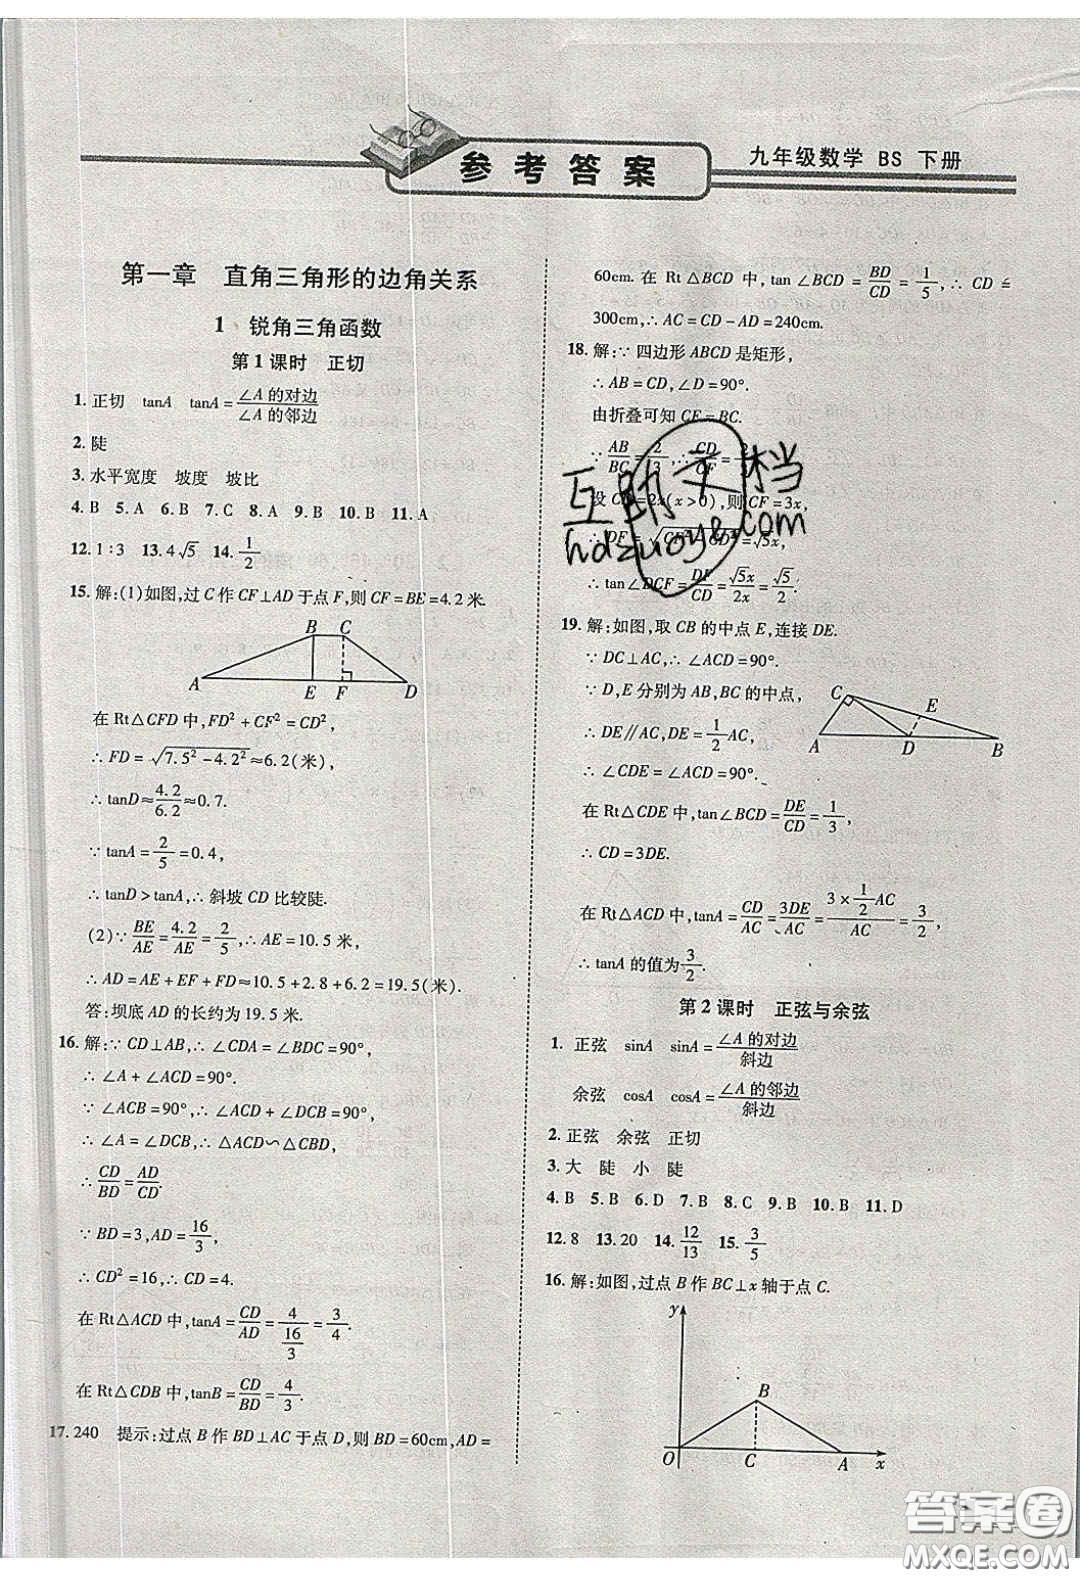 参考答案
九年级数学 BS 下册
第一章 直角三角形的边角关系
1 锐角三角函数
第1课时 正切
1.正切 tanA tanA=∠A的对边/∠A的邻边
2.陡
3.水平宽度 坡度 坡比
4.B 5.A 6.B 7.C 8.A 9.B 10.B 11.A
12.1∶3 13.4√5 14.1/2
15.解:(1)如图,过C作CF⊥AD于点F,则CF=BE=4.2米.
B C
A E F D
在Rt△CFD中,FD²+CF²=CD²,
∴FD=√(7.5²-4.2²)≈6.2(米),
∴tanD≈4.2/6.2≈0.7.
∵tanA=2/5=0.4,
∴tanD>tanA,∴斜坡CD比较陡.
(2)∵BE/AE=4.2/AE=2/5,∴AE=10.5米,
∴AD=AE+EF+FD≈10.5+2.8+6.2=19.5(米).
答:坝底AD的长约为19.5米.
16.解:∵CD⊥AB,∴∠CDA=∠BDC=90°,
∴∠A+∠ACD=90°.
∵∠ACB=90°,∴∠ACD+∠DCB=90°,
∴∠A=∠DCB,∴△ACD∽△CBD,
∴CD/BD=AD/CD.
∵BD=3,AD=16/3,
∴CD²=16,∴CD=4.
在Rt△ACD中,tanA=CD/AD=4/(16/3)=3/4.
在Rt△CDB中,tanB=CD/BD=4/3.
17.240 提示:过点B作BD⊥AC于点D,则BD=60cm,AD=
60cm.在Rt△BCD中,tan∠BCD=BD/CD=1/5,∴CD=
300cm,∴AC=CD-AD=240cm.
18.解:∵四边形ABCD是矩形,
∴AB=CD,∠D=90°.
由折叠可知CF=BC.
∵AB/BC=2/3,∴CD/CF=2/3.
设CD=2x(x>0),则CF=3x,
∴DF=√(CF²-CD²)=√5x,
∴tan∠DCF=DF/CD=√5x/2x=√5/2.
互助文档
hdzuoye.com
19.解:如图,取CB的中点E,连接DE.
∵DC⊥AC,∴∠ACD=90°.
∵D,E分别为AB,BC的中点,
∴DE∥AC,DE=1/2AC,
∴∠CDE=∠ACD=90°.
C E
A D B
在Rt△CDE中,tan∠BCD=DE/CD=1/3,
∴CD=3DE.
在Rt△ACD中,tanA=CD/AC=3DE/AC=(3×1/2AC)/AC=3/2,
∴tanA的值为3/2.
第2课时 正弦与余弦
1.正弦 sinA sinA=∠A的对边/斜边
余弦 cosA cosA=∠A的邻边/斜边
2.正弦 余弦 正切
3.大 陡 小 陡
4.B 5.B 6.D 7.B 8.C 9.B 10.B 11.D
12.8 13.20 14.12/13 15.3/5
16.解:如图,过点B作BC⊥x轴于点C.
y
B
O C A x
答案圈
MXQE.COM